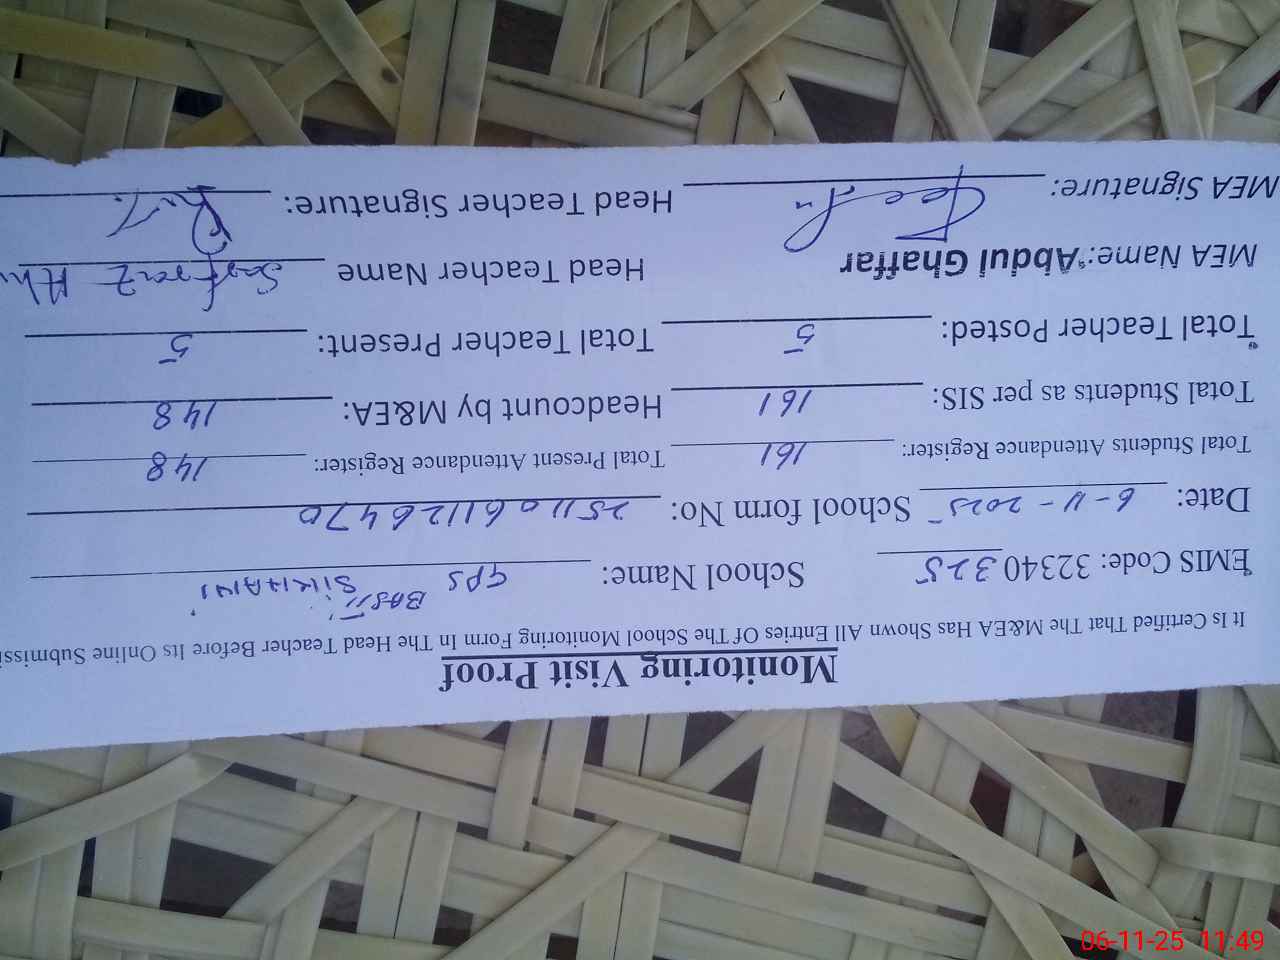 Monitoring Visit Proof
It Is Certified That The M&EA Has Shown All Entries Of The School Monitoring Form In The Head Teacher Before Its Online Submissi
EMIS Code: 32340325 School Name: GPS BASTI SIKHANI
Date: 6-11-2025 School form No: 2511061126470
Total Students Attendance Register: 161 Total Present Attendance Register: 148
Total Students as per SIS: 161 Headcount by M&EA: 148
Total Teacher Posted: 5 Total Teacher Present: 5
MEA Name: Abdul Ghaffar Head Teacher Name Sarfraz Ah
MEA Signature: Head Teacher Signature:
06-11-25 11:49